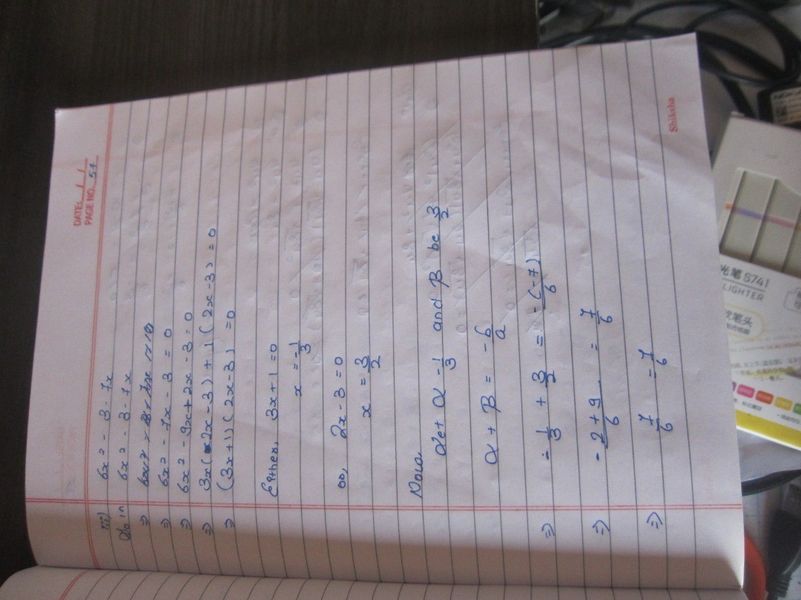 DATE: / /
PAGE NO. 51
iii) 6x² - 3 - 7x
Soln 6x² - 3 - 7x
⇒ 6x² - 7x - 3 = 0
⇒ 6x² - 9x + 2x - 3 = 0
⇒ 3x(2x - 3) + 1(2x - 3) = 0
⇒ (3x+1)(2x-3) = 0
Either, 3x+1 = 0
x = -1/3
or, 2x - 3 = 0
x = 3/2
Now
Let α -1/3 and β be 3/2
α + β = -b/a
⇒ -1/3 + 3/2 = -(-7)/6
⇒ -2+9/6 = 7/6
⇒ 7/6 = 7/6
Shiksha
光笔 S741
LIGHTER
笔头